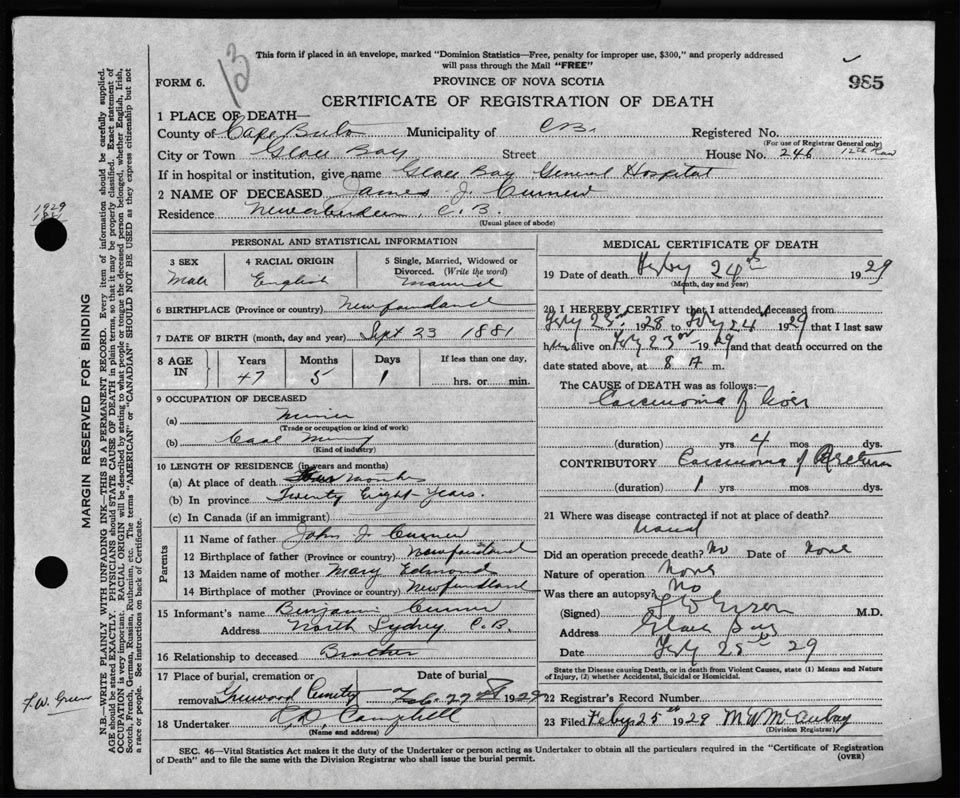 13
This form if placed in an envelope, marked "Dominion Statistics—Free, penalty for improper use, $300," and properly addressed
will pass through the Mail "FREE"
FORM 6. PROVINCE OF NOVA SCOTIA 985
CERTIFICATE OF REGISTRATION OF DEATH
1 PLACE OF DEATH—
County of Cape Breton Municipality of C.B. Registered No.
(For use of Registrar General only)
City or Town Glace Bay Street House No. 246 12th Row
If in hospital or institution, give name Glace Bay General Hospital
2 NAME OF DECEASED James J. Curnew
Residence New Aberdeen, C.B.
(Usual place of abode)
PERSONAL AND STATISTICAL INFORMATION
3 SEX 4 RACIAL ORIGIN 5 Single, Married, Widowed or
Divorced. (Write the word)
Male English Married
6 BIRTHPLACE (Province or country) Newfoundland
7 DATE OF BIRTH (month, day and year) Sept 23 1881
8 AGE IN Years Months Days If less than one day,
47 5 1 hrs. or min.
9 OCCUPATION OF DECEASED
(a) Miner
(Trade or occupation or kind of work)
(b) Coal Mining
(Kind of industry)
10 LENGTH OF RESIDENCE (in years and months)
(a) At place of death months
(b) In province Twenty Eight-years.
(c) In Canada (if an immigrant)
Parents
11 Name of father John J. Curnew
12 Birthplace of father (Province or country) Newfoundland
13 Maiden name of mother Mary Edmonds
14 Birthplace of mother (Province or country) Newfoundland
15 Informant's name Benjamin Curnew
Address North Sydney C.B.
16 Relationship to deceased Brother
17 Place of burial, cremation or Date of burial
removal Greenwood Cemetery Feb. 27th 1929
18 Undertaker A.D. Campbell
(Name and address)
MEDICAL CERTIFICATE OF DEATH
19 Date of death Feby 24th 1929
(Month, day and year)
20 I HEREBY CERTIFY that I attended deceased from
Feby 23rd 1928 to Feby 24th 1929 that I last saw
him alive on Feby 23rd 1929 and that death occurred on the
date stated above, at 8 A m.
The CAUSE of DEATH was as follows:—
Carcinoma of Liver
(duration) yrs 4 mos dys.
CONTRIBUTORY Carcinoma of Rectum
(duration) 1 yrs. mos. dys.
21 Where was disease contracted if not at place of death?
Did an operation precede death? No Date of None
Nature of operation None
Was there an autopsy? No
(Signed) M.D.
Address Glace Bay
Date Feby 25th 29
State the Disease causing Death, or in death from Violent Causes, state (1) Means and Nature
of Injury, (2) whether Accidental, Suicidal or Homicidal.
22 Registrar's Record Number
23 Filed Feby 25th 1929
(Division Registrar)
SEC. 46—Vital Statistics Act makes it the duty of the Undertaker or person acting as Undertaker to obtain all the particulars required in the "Certificate of Registration
of Death" and to file the same with the Division Registrar who shall issue the burial permit. (OVER)
1929
1881
F.W. Green
MARGIN RESERVED FOR BINDING
N.B.—WRITE PLAINLY WITH UNFADING INK—THIS IS A PERMANENT RECORD. Every item of information should be carefully supplied.
AGE should be stated EXACTLY. PHYSICIANS should STATE CAUSE OF DEATH in plain terms, so that it may be properly classified. Exact statement of
OCCUPATION is very important. RACIAL ORIGIN will be described by stating to what people or tongue the deceased person belonged, whether English, Irish,
Scotch, French, German, Russian, Ruthenian, etc. The terms "AMERICAN" or "CANADIAN" SHOULD NOT BE USED as they express citizenship but not
a race or people. See instructions on back of Certificate.